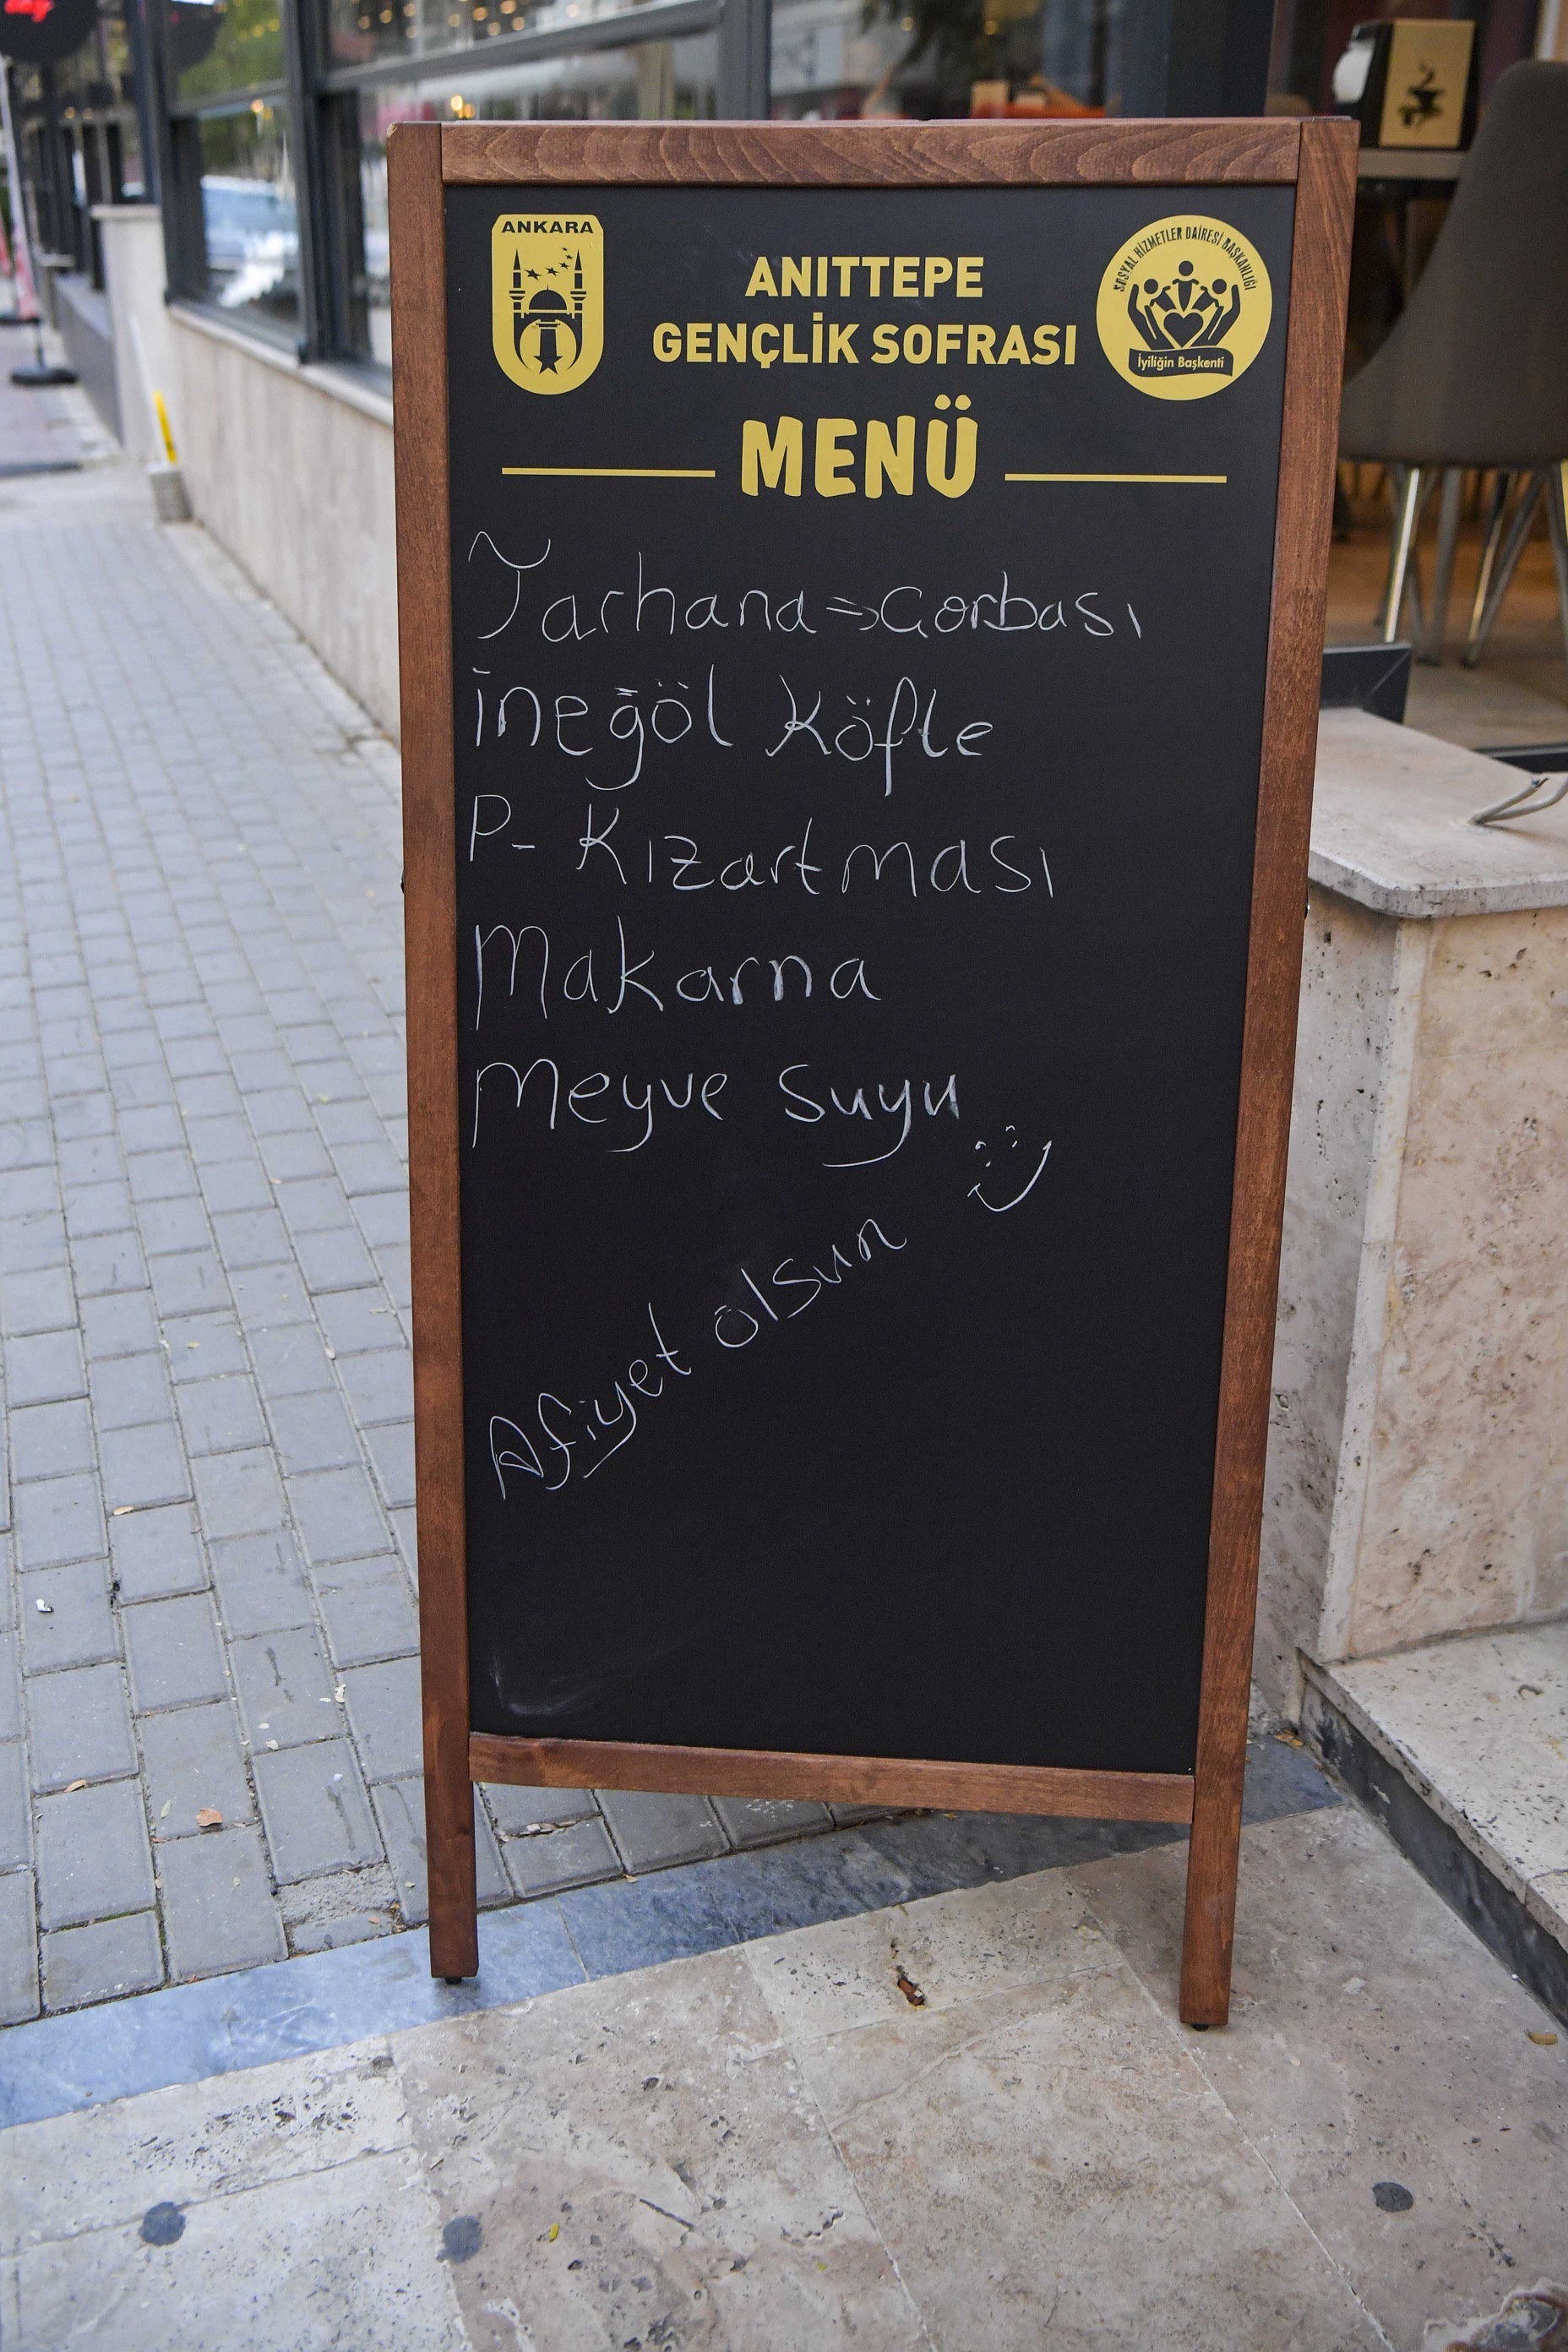 ANKARA
ANITTEPE
GENÇLİK SOFRASI
SOSYAL HİZMETLER DAİRESİ BAŞKANLIĞI
İyiliğin Başkenti
MENÜ
Tarhana => Çorbası
İnegöl Köfte
P- Kızartması
Makarna
Meyve Suyu
Afiyet olsun